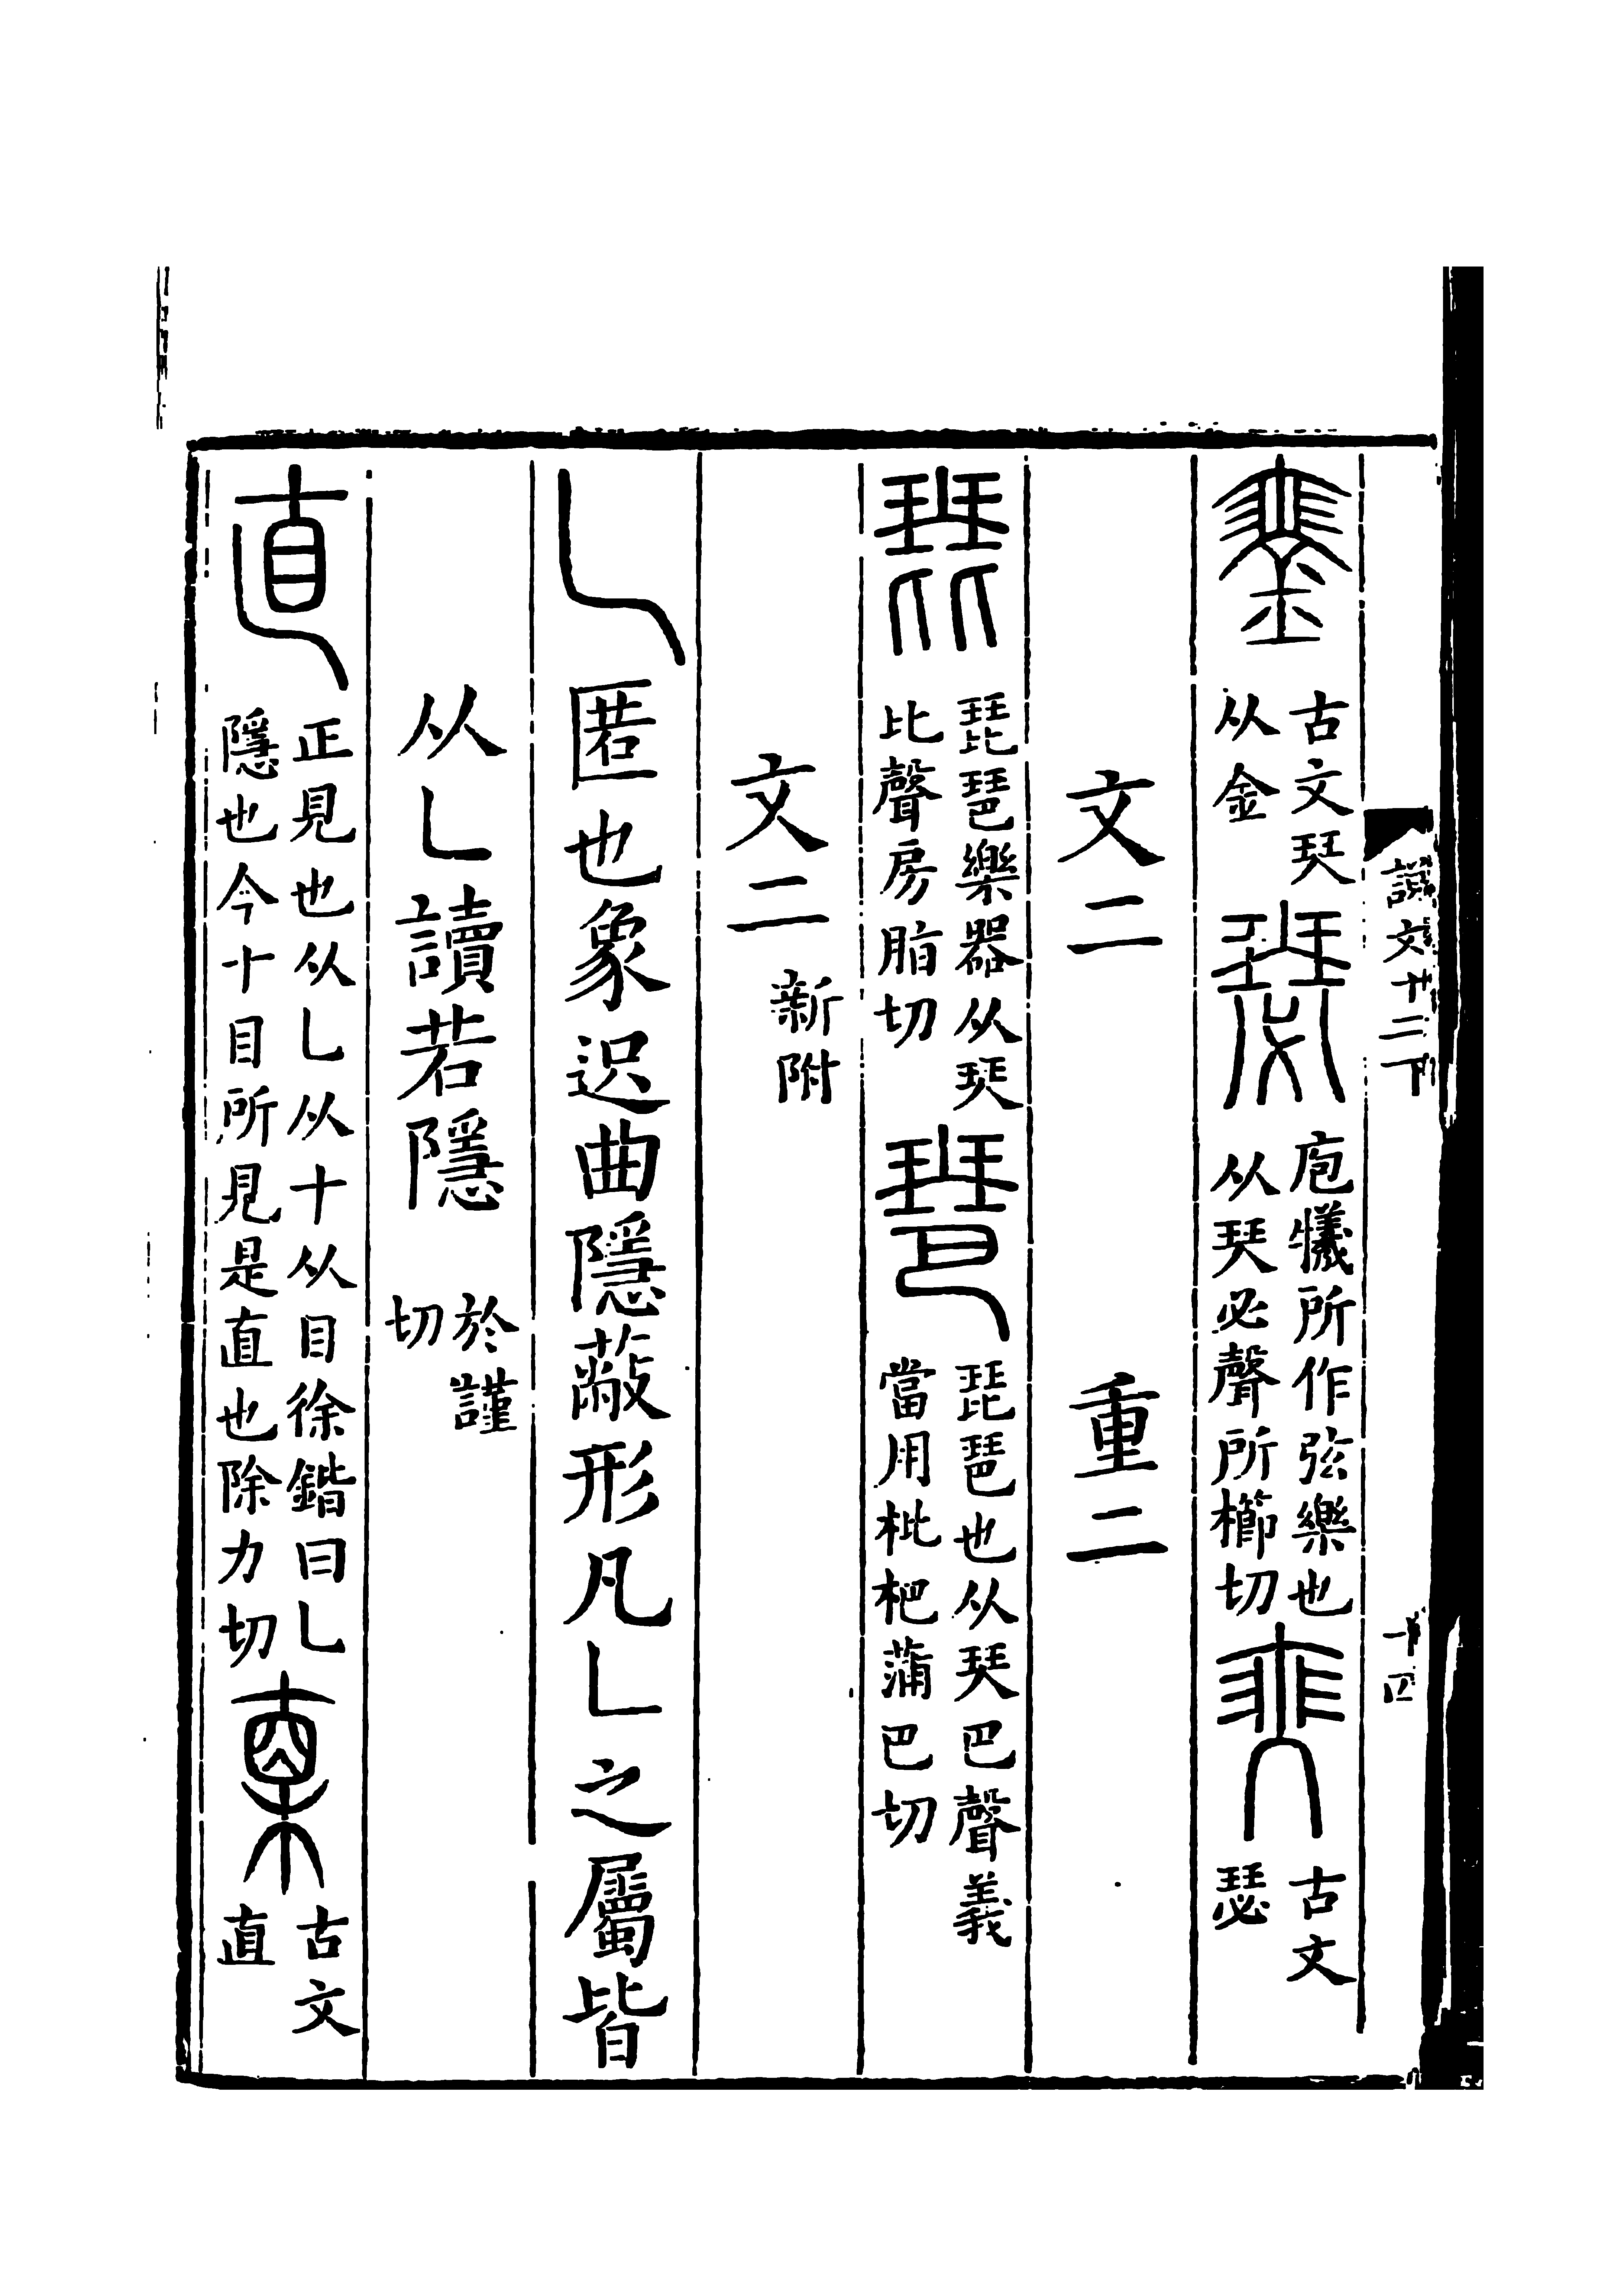 説文十二下
十四
𨥆 古文珡从金 瑟 庖犧所作弦樂也从珡必聲所櫛切 𤦣 古文瑟
文二 重二
琵 琵琶樂器从珡比聲房脂切 琶 琵琶也从珡巴聲義當用枇杷蒲巴切
文二 新附
乚 匿也象迟曲隱蔽形凡乚之屬皆
从乚讀若隱 於謹切
直 正見也从乚从十从目徐鍇曰乚隱也今十目所見是直也除力切 𣖴 古文直